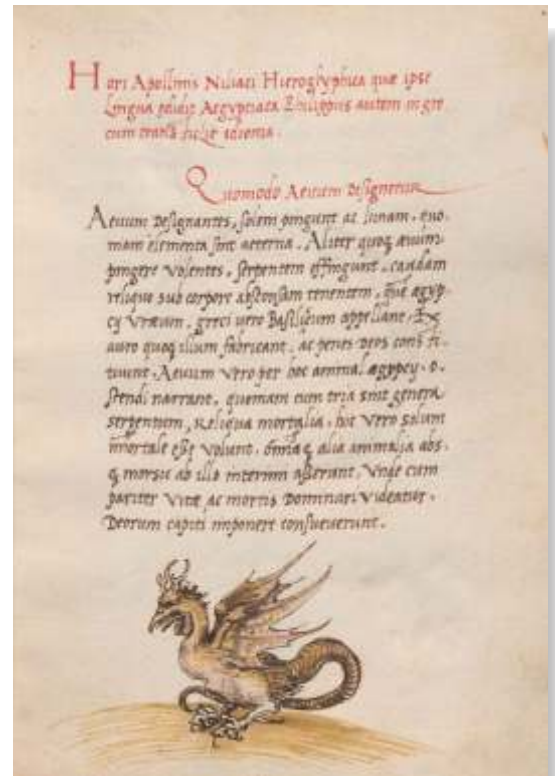 Hori Apollinis Niliaci Hieroglyphica quæ ipse
Lingua edidit Aegyptiaca Philippus autem in gre
cum idioma.
Quomodo Aeuum designetur
Aeuum designantes, solem pingunt ac lunam. quo-
niam elementa sint aeterna. Aliter quoq æuum
pingere volentes, serpentem effingunt, caudam
reliquo sub corpore absconsam tenentem, que ægyp-
cÿ Vræum, greci vero Basiliscum appellant. Ex
auro quoq illum fabricant, ac penes deos consti-
tuunt. Aeuum vero per hoc animal ægypcÿ o-
stendi narrant, quoniam cum tria sint genera
serpentum, reliqua mortalia, hoc vero solum
esse volunt. omniaq alia animalia abs-
q morsu ab illo interimi asserunt. Vnde cum
pariter vitæ ac mortis Dominari videatur.
Deorum capiti imponere consueuerunt.